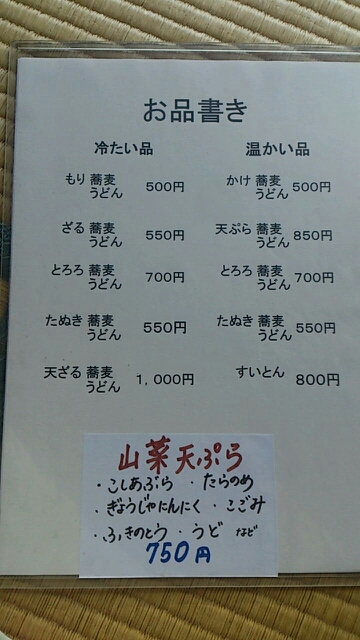 お品書き
冷たい品
もり 蕎麦 うどん 500円
ざる 蕎麦 うどん 550円
とろろ 蕎麦 うどん 700円
たぬき 蕎麦 うどん 550円
天ざる 蕎麦 うどん 1,000円
温かい品
かけ 蕎麦 うどん 500円
天ぷら 蕎麦 うどん 850円
とろろ 蕎麦 うどん 700円
たぬき 蕎麦 うどん 550円
すいとん 800円
山菜天ぷら
・こしあぶら ・たらのめ
・ぎょうじゃにんにく ・こごみ
・ふきのとう ・うど など
750円